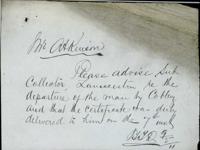 Mr Atkinson
Please advise Sub
Collector Launceston re the
departure of the man by Coblenz
and that the certificate was duly
delivered to him on the